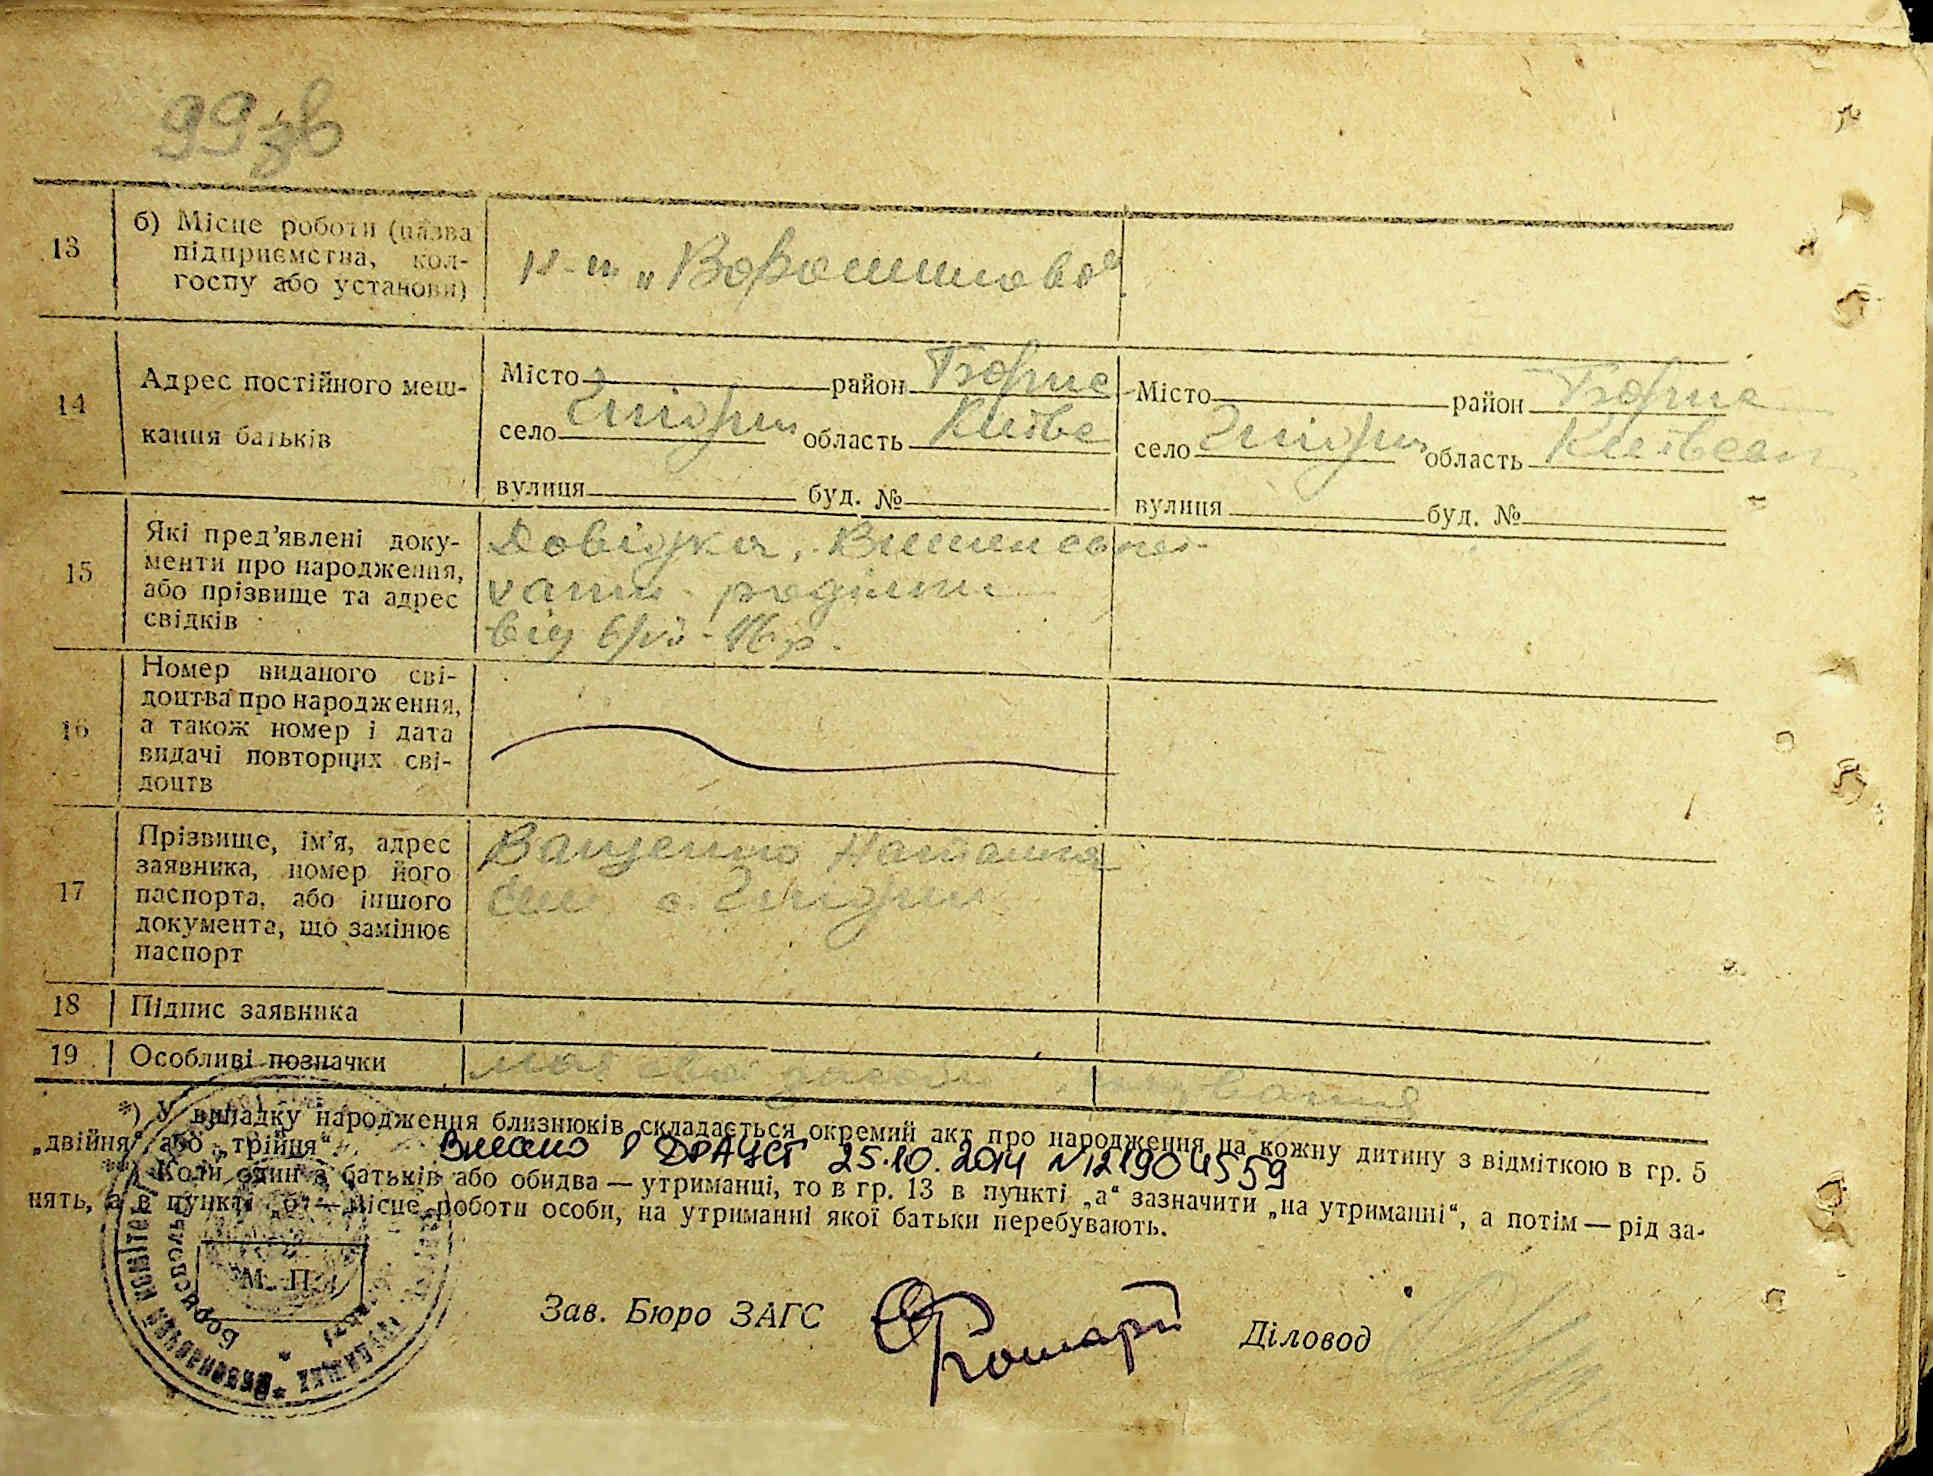 99зв
13
б) Місце роботи (назва
підприємства, кол-
госпу або установи)
к-п „Ворошилова“
14
Адрес постійного меш-
кання батьків
Місто район Борис
село Гнідин область Київс
вулиця буд. №
Місто район Борис
село Гнідин область Київськ
вулиця буд. №
15
Які пред’явлені доку-
менти про народження,
або прізвище та адрес
свідків
Довідка,
від 6/VII-46 р.
16
Номер виданого сві-
доцтва про народження,
а також номер і дата
видачі повторних сві-
доцтв
17
Прізвище, ім’я, адрес
заявника, номер його
паспорта, або іншого
документа, що замінює
паспорт
Ващенко Наталія
с. Гнідин
18
Підпис заявника
19
Особливі позначки
*) У випадку народження близнюків складається окремий акт про народження на кожну дитину з відміткою в гр. 5
„двійня“ або „трійня“.
Внесено в ДРАЦСГ 25.10.2014 №121904559
**) Коли один з батьків або обидва — утриманці, то в гр. 13 в пункті „а“ зазначити „на утриманні“, а потім — рід за-
нять, а в пункті „б“ — місце роботи особи, на утриманні якої батьки перебувають.
М. П.
Зав. Бюро ЗАГС
Діловод